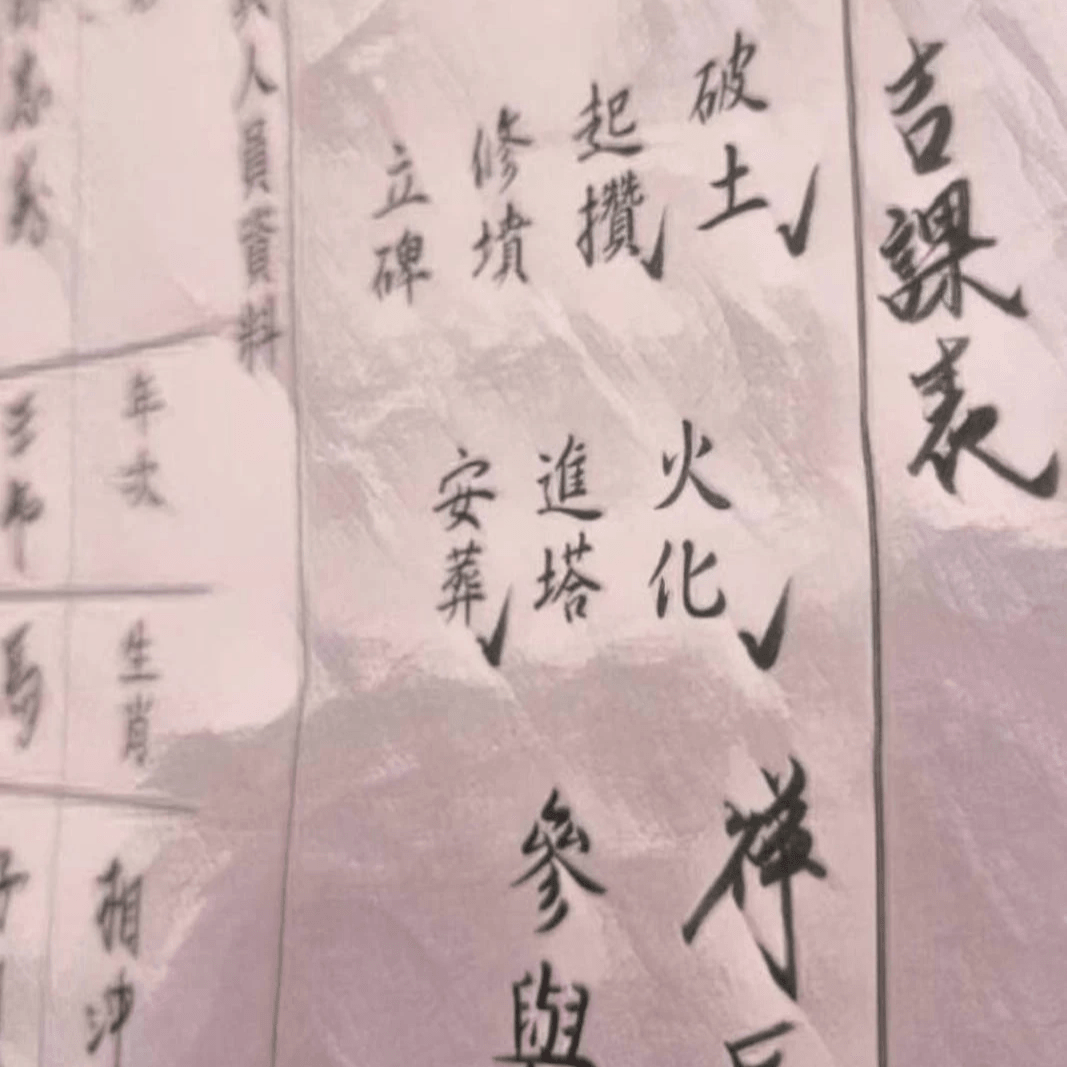 吉課表
破土✓
火化✓
祥
起攢✓
進塔
參與
修墳
安葬✓
立碑
人員資料
年次
生肖
相沖
馬